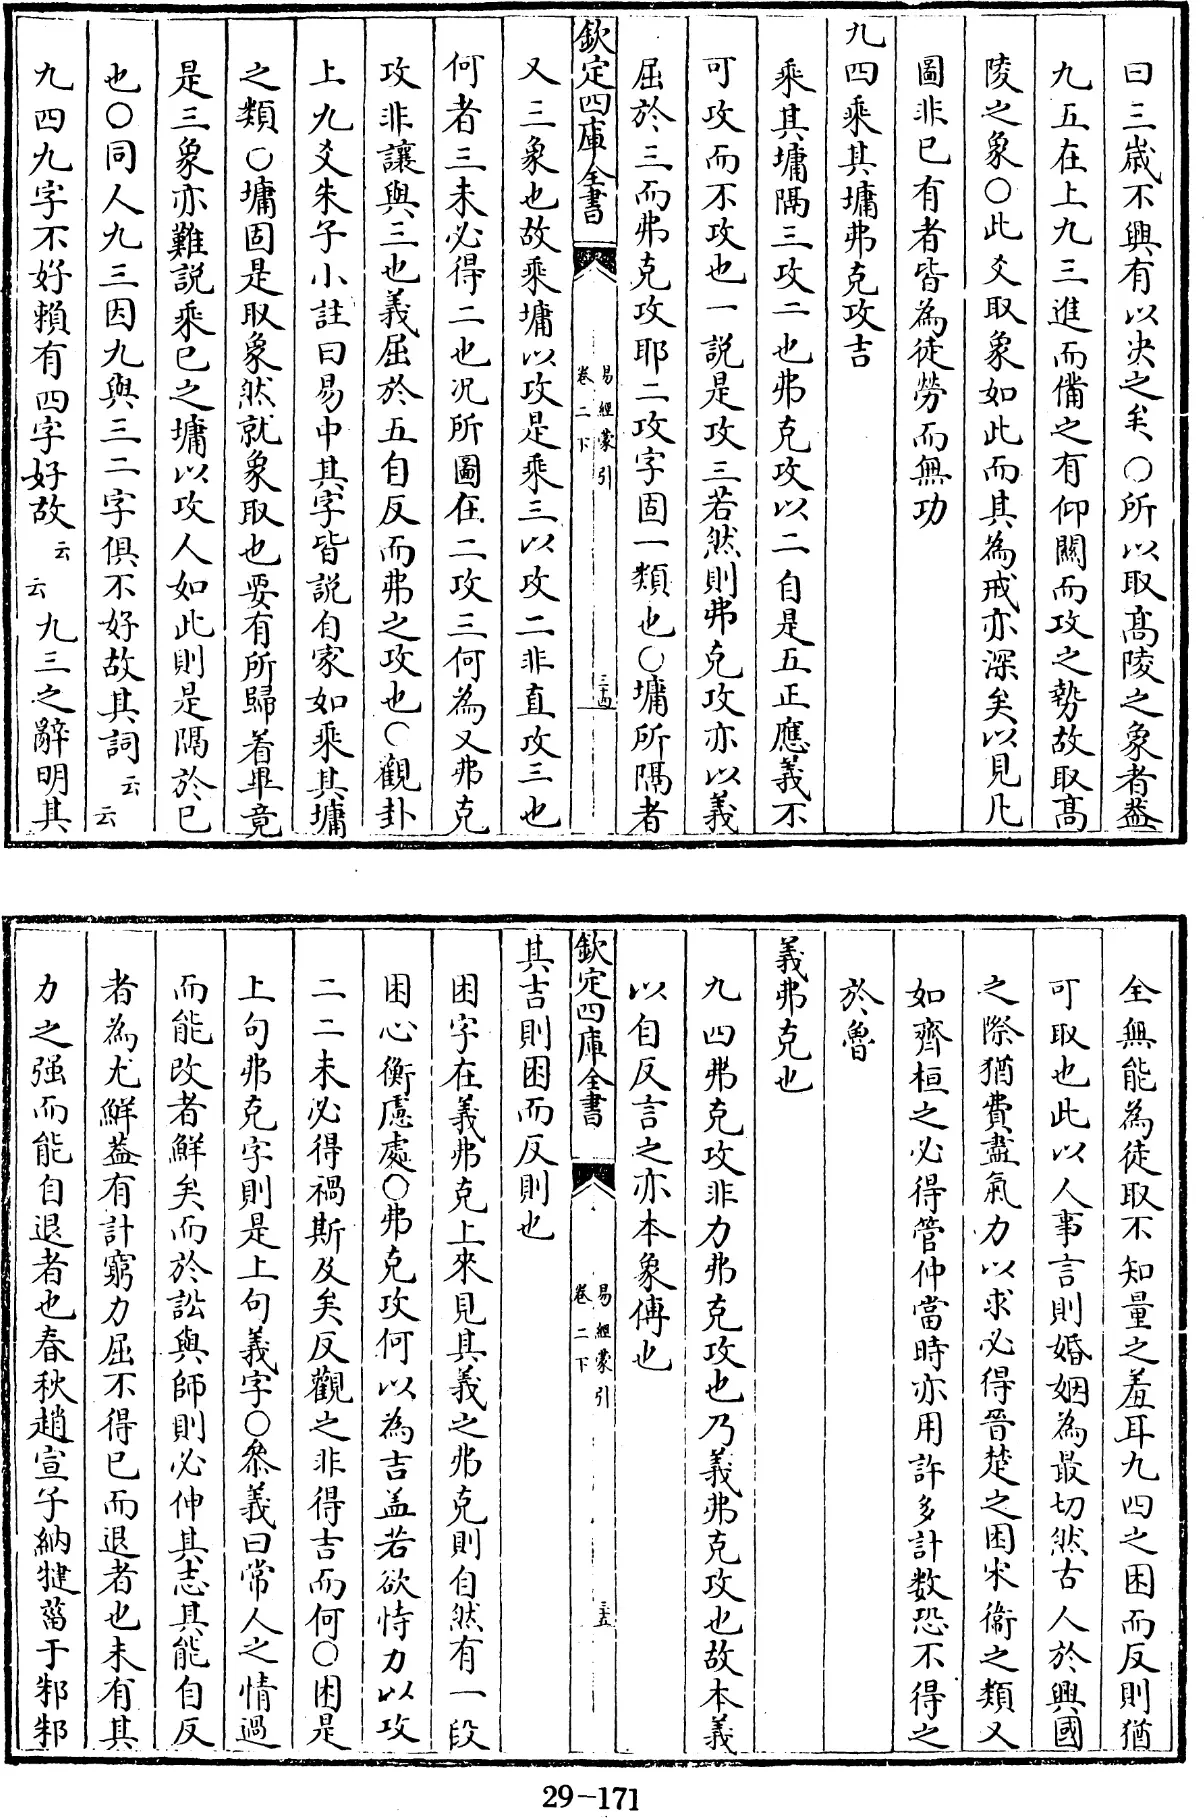 曰三歲不興有以决之矣○所以取髙陵之象者葢
九五在上九三進而備之有仰關而攻之勢故取髙
陵之象○此爻取象如此而其為戒亦深矣以見凡
圖非已有者皆為徒勞而無功
九四乘其墉弗克攻吉
乘其墉隅三攻二也弗克攻以二自是五正應義不
可攻而不攻也一説是攻三若然則弗克攻亦以義
屈於三而弗克攻耶二攻字固一類也○墉所隔者
欽定四庫全書
易經蒙引
卷二下
三四
又三象也故乘墉以攻是乘三以攻二非直攻三也
何者三未必得二也况所圖在二攻三何為又弗克
攻非讓與三也義屈於五自反而弗之攻也○觀卦
上九爻朱子小註曰易中其字皆説自家如乘其墉
之類○墉固是取象然就象取也要有所歸着畢竟
是三象亦難説乘已之墉以攻人如此則是隔於已
也○同人九三因九與三二字俱不好故其詞云云
九四九字不好賴有四字好故云云九三之辭明其
全無能為徒取不知量之羞耳九四之困而反則猶
可取也此以人事言則婚姻為最切然古人於興國
之際猶費盡氣力以求必得晉楚之困宋衞之類又
如齊桓之必得管仲當時亦用許多計數恐不得之
於魯
義弗克也
九四弗克攻非力弗克攻也乃義弗克攻也故本義
以自反言之亦本象傳也
欽定四庫全書
易經蒙引
卷二下
三五
其吉則困而反則也
困字在義弗克上來見其義之弗克則自然有一段
困心衡慮處○弗克攻何以為吉盖若欲恃力以攻
二二未必得禍斯及矣反觀之非得吉而何○困是
上句弗克字則是上句義字○叅義曰常人之情過
而能改者鮮矣而於訟與師則必伸其志其能自反
者為尤鮮葢有計窮力屈不得已而退者也未有其
力之强而能自退者也春秋趙宣子納捷菑于邾邾
29-171